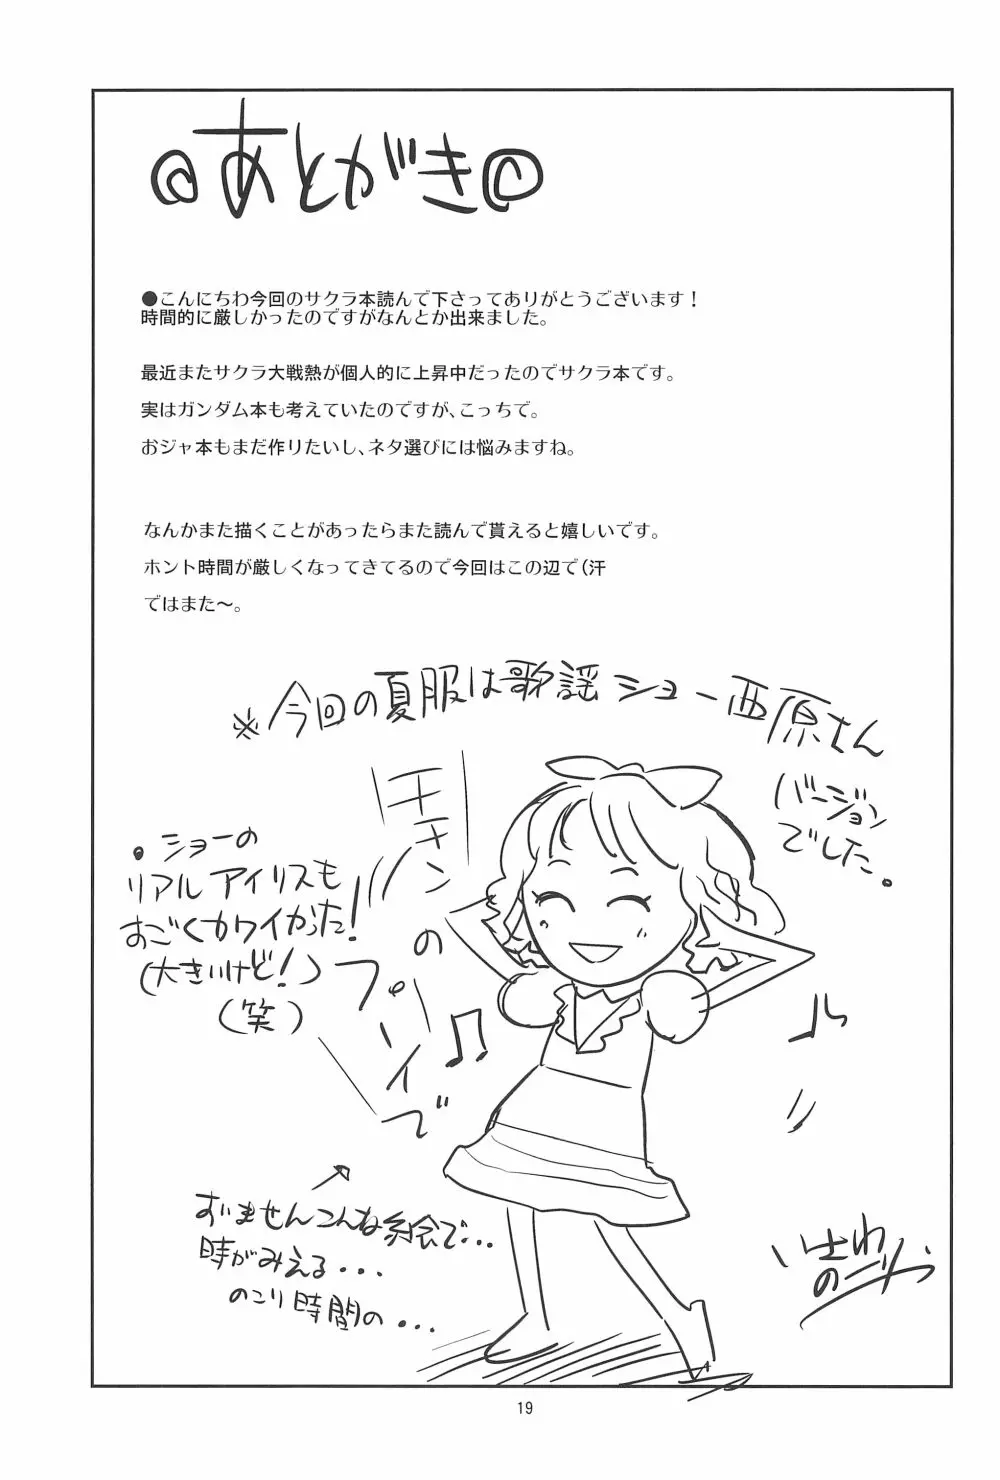 @あとがき@
●こんにちわ今回のサクラ本読んで下さってありがとうございます！
時間的に厳しかったのですがなんとか出来ました。
最近またサクラ大戦熱が個人的に上昇中だったのでサクラ本です。
実はガンダム本も考えていたのですが、こっちで。
おジャ本もまだ作りたいし、ネタ選びには悩みますね。
なんかまた描くことがあったらまた読んで貰えると嬉しいです。
ホント時間が厳しくなってきてるので今回はこの辺で（汗
ではまた〜。
※今回の夏服は歌謡ショー西原さん
バージョン
でした。
・ショーの
リアルアイリスも
すごくカワイかった！
(大きいけど！)
(笑)
のプーイで
すいませんこんな絵で...
時がみえる...
のこり時間の...
いさわ
のーり
19